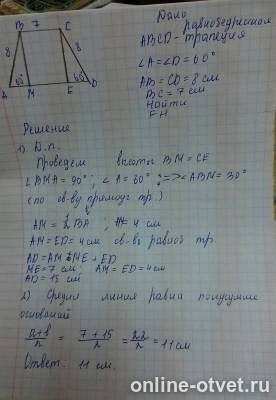 Дано
B 7 C
равнобедренная
ABCD - трапеция
8 8
∠A = ∠D = 60°
60° 60°
A M E D
AB = CD = 8 см
BC = 7 см
Найти
FH
Решение
1) Д.п.
Проведем высоты BM = CE
∠BMA = 90°; ∠A = 60°; => ∠ABM = 30°
(по св-ву прямоуг тр.)
AM = ½ BA; = 4 см
AM = ED = 4 см св-во равноб тр
AD = AM + ME + ED
ME = 7 см; AM = ED = 4 см
AD = 15 см
2) Средняя линия равна полусумме
оснований
a+b/2 = 7+15/2 = 22/2 = 11 см
Ответ: 11 см.
online-otvet.ru